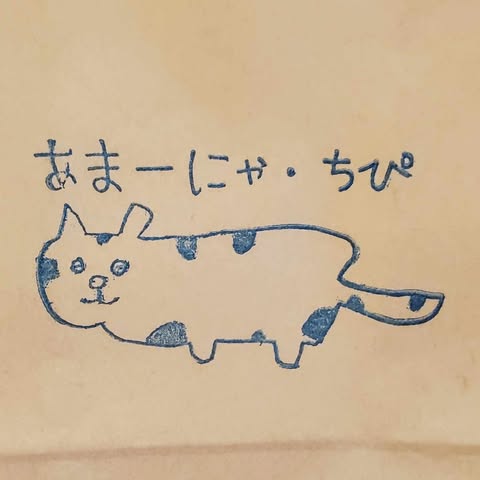 あまーにゃ・ちぴ